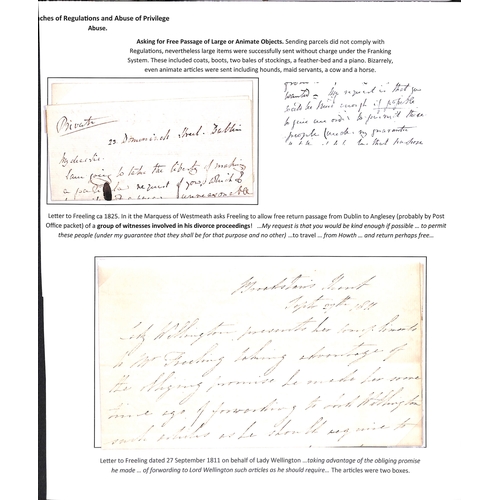 ches of Regulations and Abuse of Privilege
Abuse.
Asking for Free Passage of Large or Animate Objects. Sending parcels did not comply with
Regulations, nevertheless large items were successfully sent without charge under the Franking
System. These included coats, boots, two bales of stockings, a feather-bed and a piano. Bizarrely,
even animate articles were sent including hounds, maid servants, a cow and a horse.
Private
23 Dominick Street. Dublin
My dear Sir
I am going to take the liberty of making
a particular request of you, which if
unreasonable
wanted – My request is that you
would be kind enough if possible
to give an order to permit these
people (under my guarantee
that they shall be for that purpose
Letter to Freeling ca 1825. In it the Marquess of Westmeath asks Freeling to allow free return passage from Dublin to Anglesey (probably by Post
Office packet) of a group of witnesses involved in his divorce proceedings! ...My request is that you would be kind enough if possible ... to permit
these people (under my guarantee that they shall be for that purpose and no other) ...to travel ... from Howth ... and return perhaps free...
Broadstairs Kent
Septr 27th 1811
Lady Wellington presents her compliments
to Mr Freeling taking advantage of
the obliging promise he made her some
time ago of forwarding to Lord Wellington
such articles as he should require to
Letter to Freeling dated 27 September 1811 on behalf of Lady Wellington ...taking advantage of the obliging promise
he made ... of forwarding to Lord Wellington such articles as he should require... The articles were two boxes.